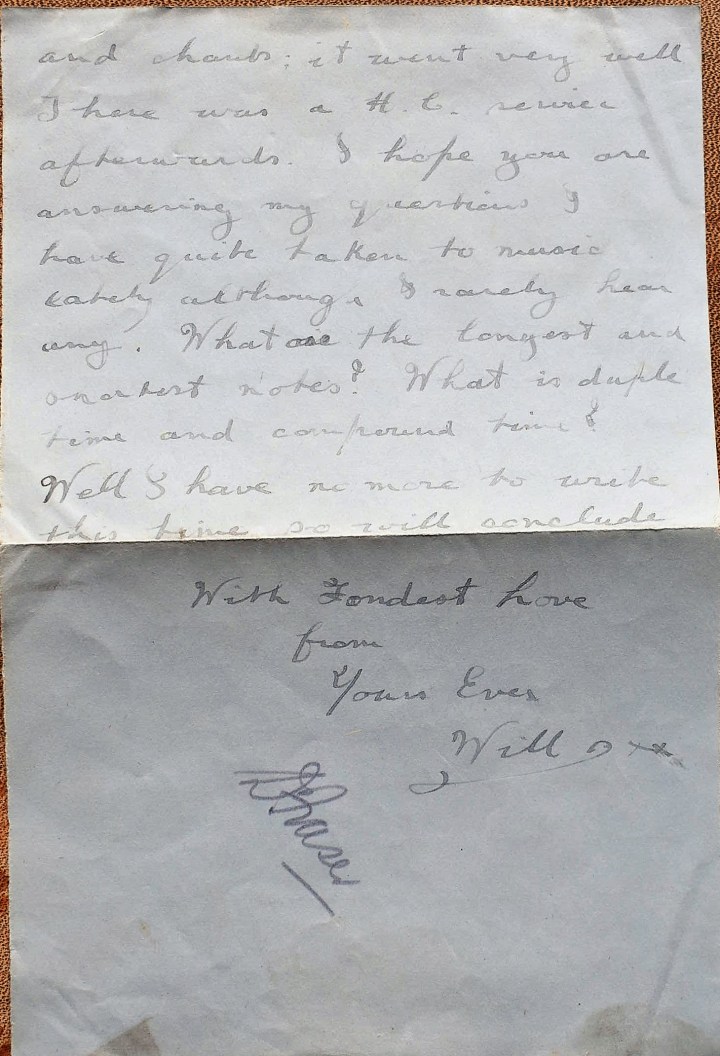 and chants; it went very well
There was a H.C. service
afterwards. I hope you are
answering my questions I
have quite taken to music
lately although I rarely hear
any. What are the longest and
shortest notes? What is duple
time and compound time?
Well I have no more to write
this time so will conclude
With Fondest Love
from
Yours Ever
Will xx